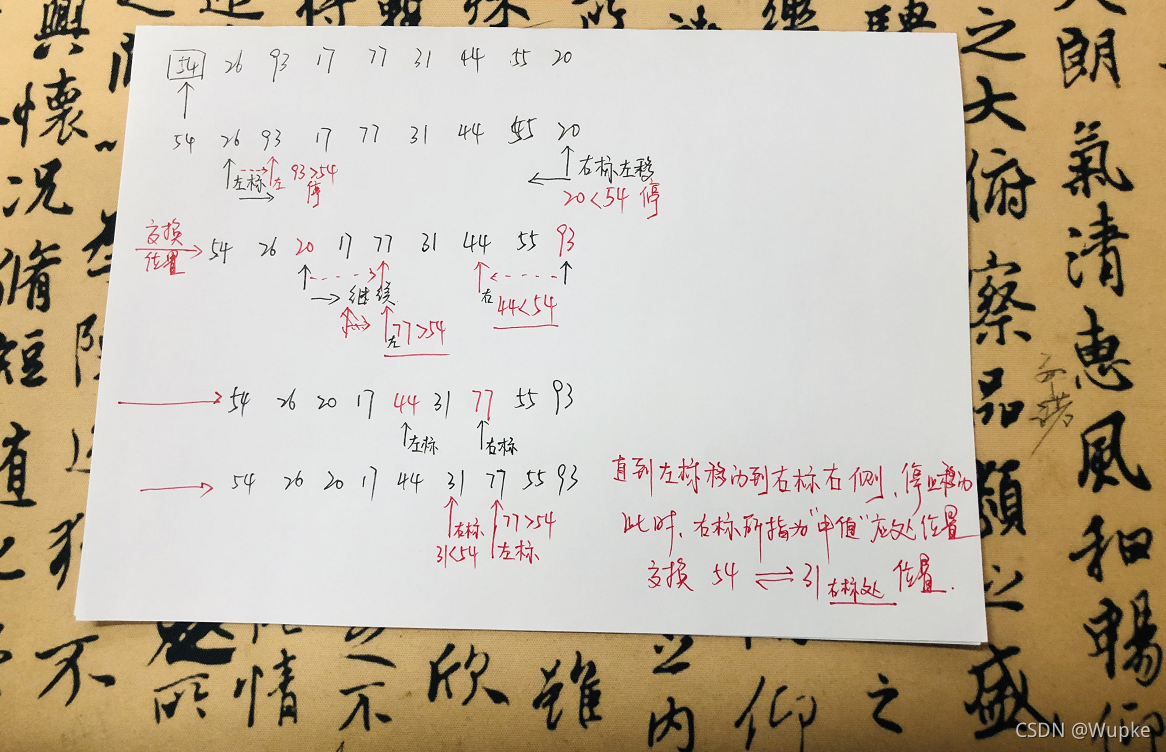 54 26 93 17 77 31 44 55 20
54 26 93 17 77 31 44 55 20
左标 左 93>54 停
右标左移
20<54 停
交换位置 54 26 20 17 77 31 44 55 93
继续
右 44<54
左 77>54
54 26 20 17 44 31 77 55 93
左标 右标
54 26 20 17 44 31 77 55 93
右标 31<54
77>54 左标
直到左标移动到右标右侧,停止移动
此时,右标所指为“中值”应处位置
交换 54 ⇌ 31 右标处 位置.
興懷
情
况脩短
不
所
之不
欣
雖
内
仰
之
之大俯察品類之盛
朗氣清惠風和暢
CSDN @Wupke